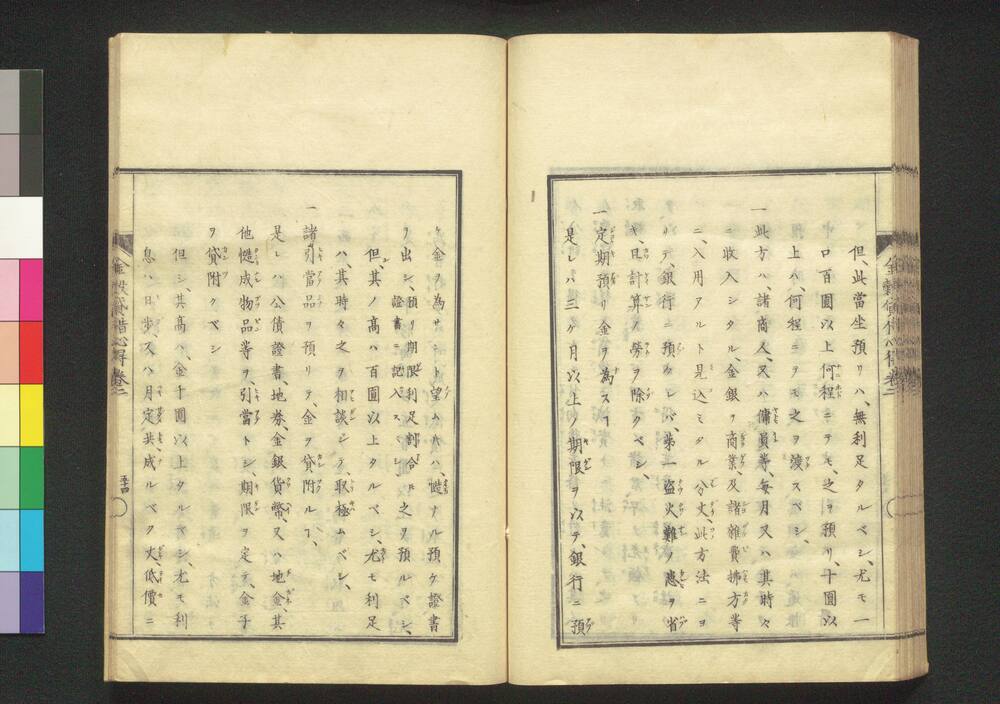 但、此當坐預リハ、無利足タルベシ、尤モ一
口百圓以上何程ニテモ、之ヲ預リ、十圓以
上ハ、何程ニテモ之ヲ渡スベシ、
一此方ハ、諸商人、又ハ傭員等、毎月又ハ其時々
ニ收入シタル、金銀ヲ商業、及諸雜費拂方等
ニ、入用アルト見込ミタル分丈、此方法ニヨ
リテ、銀行ニ預クレバ、第一盗火難ノ患ヲ省
キ、且計算ノ勞ヲ除クベシ、
一定期預リ金ヲ為スヿ
是レハ三ケ月以上ノ期限ヲ以テ、銀行ニ預
ケ金ヲ為サント望ム人ハ、慥ナル預ケ證書
ヲ出シ、預リ期限利足割合ヲ證書ニ記入スベシ之ヲ預ルベシ、
但、其ノ高ハ百圓以上タルベシ、尤モ利足
ハ、其時々之ヲ相談シテ、取極ムベシ、
一諸引當品ヲ預リテ、金ヲ貸附ルヿ、
是レハ公債證書、地券、金銀貨幣、又ハ地金、其
他慥成物品等ヲ、引當トシ、期限ヲ定テ、金子
ヲ貸附クベシ
但シ、其高ハ、金十圓以上タルベシ、尤モ利
息ハ、日歩、又ハ月定共、成ルベク丈、低價ニ
金穀貸借心得卷二
五十四